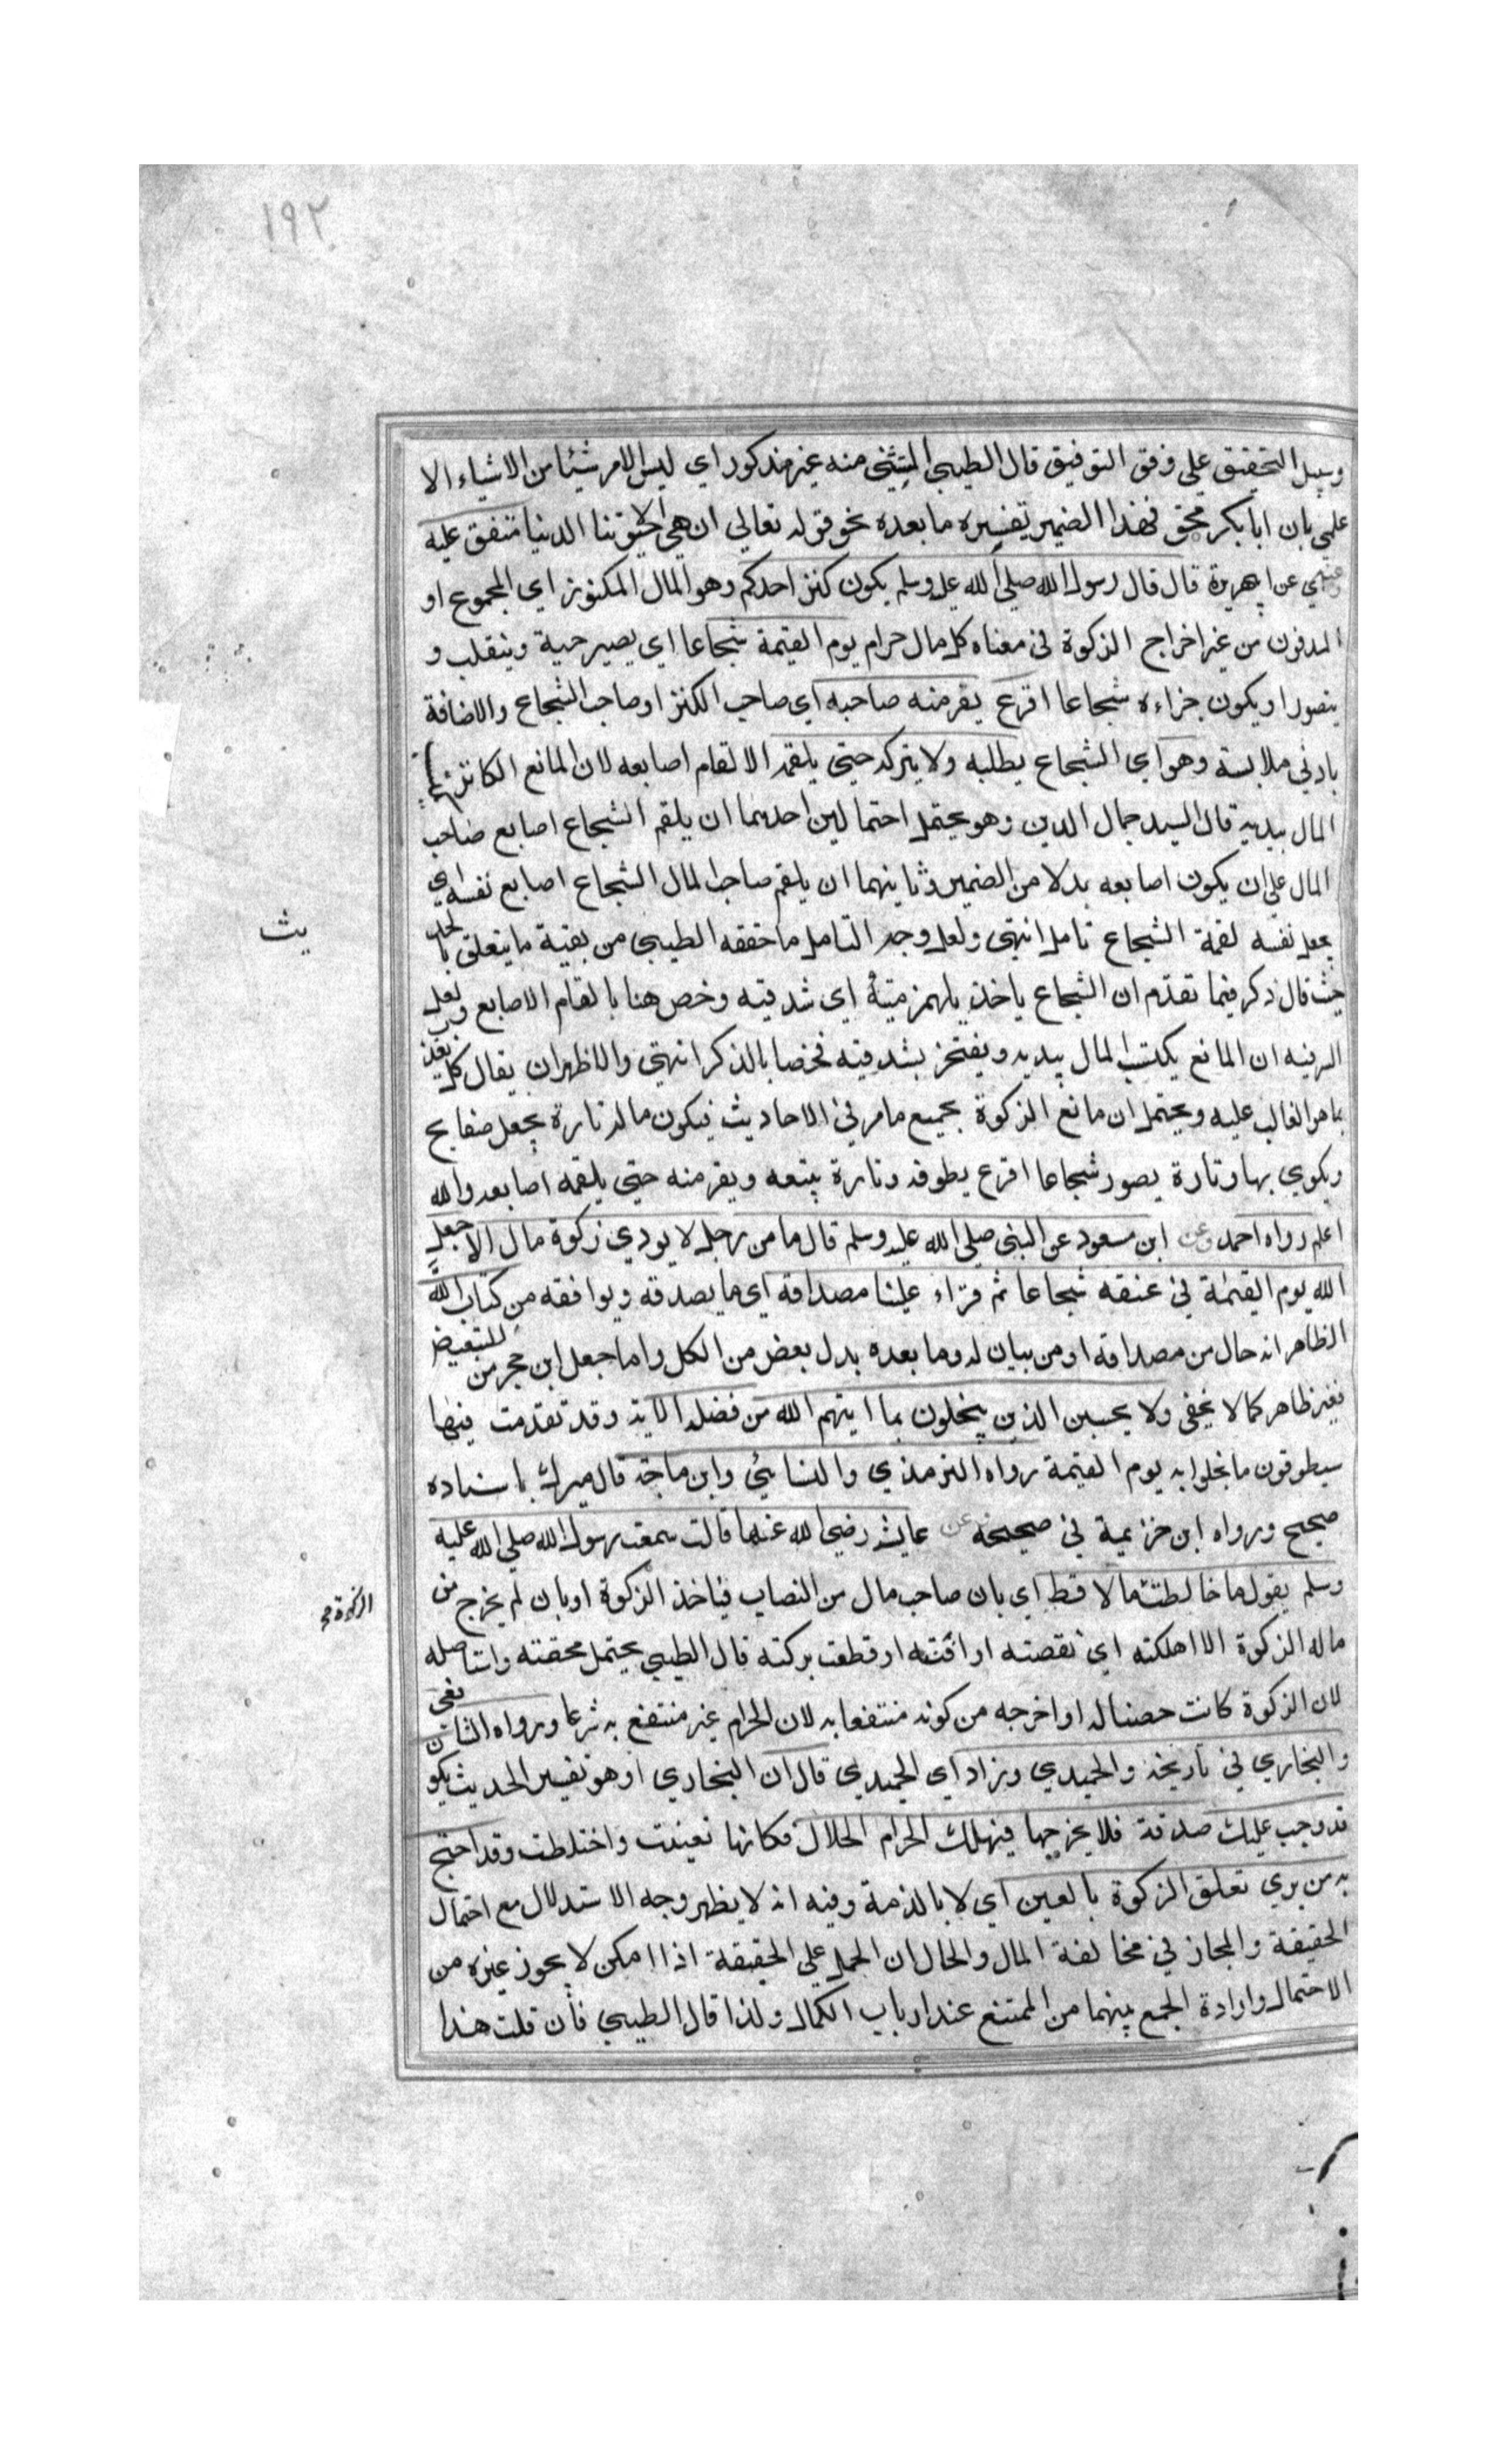 ١٩٢
وسبيل التحقيق على وفق التوفيق قال الطيبي المستثنى منه غير مذكور اي ليس الامر شيئا من الاشياء الا
علمي بان ابا بكر محق فهذا الضمير تفسيره ما بعده نحو قوله تعالى ان هي الا حيوتنا الدنيا متفق عليه
عن ابي هريرة قال قال رسول الله صلى الله عليه وسلم يكون كنز احدكم وهو المال المكنوز اي المجموع او
المدفون من غير اخراج الزكوة في معناه كل مال حرام يوم القيمة شجاعا اي يصير حية وينقلب و
يتصور او يكون جزاءه شجاعا اقرع يفر منه صاحبه اي صاحب الكنز او صاحب الشجاع والاضافة
بادني ملابسة وهو اي الشجاع يطلبه ولا يتركه حتى يلقمه الالقام اصابعه لان المانع الكانز
المال بيديه قال السيد جمال الدين وهو يحتمل احتمالين احدهما ان يلقم الشجاع اصابع صاحب
المال على ان يكون اصابعه بدلا من الضمير وثانيهما ان يلقم صاحب المال الشجاع اصابع نفسه اي
يجعل نفسه لقمة الشجاع تامل انتهى ولعل وجه التامل ما حققه الطيبي من بقية ما يتعلق بالحد
يث
حيث قال ذكر فيما تقدم ان الشجاع ياخذ بلهزمتيه اي شدقيه وخص هنا بالقام الاصابع ولعل
السر فيه ان المانع يكتسب المال بيديه ويفتخر بشدقيه فخصا بالذكر انتهى والاظهر ان يقال كل يعذب
بما هو الغالب عليه ويحتمل ان مانع الزكوة بجميع ما مر في الاحاديث فيكون ماله تارة يجعل صفايح
ويكوي بها وتارة يصور شجاعا اقرع يطوقه وتارة يتبعه ويفر منه حتى يلقمه اصابعه والله
اعلم رواه احمد وعن ابن مسعود عن النبي صلى الله عليه وسلم قال ما من رجل لا يودي زكوة ماله الا جعل
الله يوم القيمة في عنقه شجاعا ثم قراء علينا مصداقه اي ما يصدقه ويوافقه من كتاب الله
الظاهر انه حال من مصداقه او من بيان له وما بعده بدل بعض من الكل واما جعل ابن حجر من للتبعيض
فغير ظاهر كما لا يخفى ولا يحسبن الذين يبخلون بما ايتهم الله من فضله الآية وقد تقدمت فيها
سيطوقون ما بخلوا به يوم القيمة رواه الترمذي والنسائي وابن ماجة قال ميرك باسناده
صحيح ورواه ابن خزيمة في صحيحه وعن عايشة رضي الله عنها قالت سمعت رسول الله صلى الله عليه
وسلم يقول ما خالطت الزكوة مالا قط اي بان صاحب مال من النصاب فياخذ الزكوة او بان لم يخرج من
ماله الزكوة الا اهلكته اي نقصته او افنته او قطعت بركته قال الطيبي يحتمل محقته واستاصله
لان الزكوة كانت حصنا له او اخرجه من كونه منتفعا به لان الحرام غير منتفع به شرعا ورواه الشافعي
والبخاري في تاريخه والحميدي وزاد اي الحميدي قال ان البخاري او هو تفسير الحديث يكون
قد وجب عليك صدقة فلا يخرجها فيهلك الحرام الحلال فكانها تعينت واختلطت وقد احتج
به من يري تعلق الزكوة بالعين اي لا بالذمة وفيه انه لا يظهر وجه الاستدلال مع احتمال
الحقيقة والمجاز في مخالفة المال والحال ان الحمل على الحقيقة اذا امكن لا يجوز غيره من
الاحتمال وارادة الجمع بينهما من الممتنع عند ارباب الكمال ولذا قال الطيبي فان قلت هذا